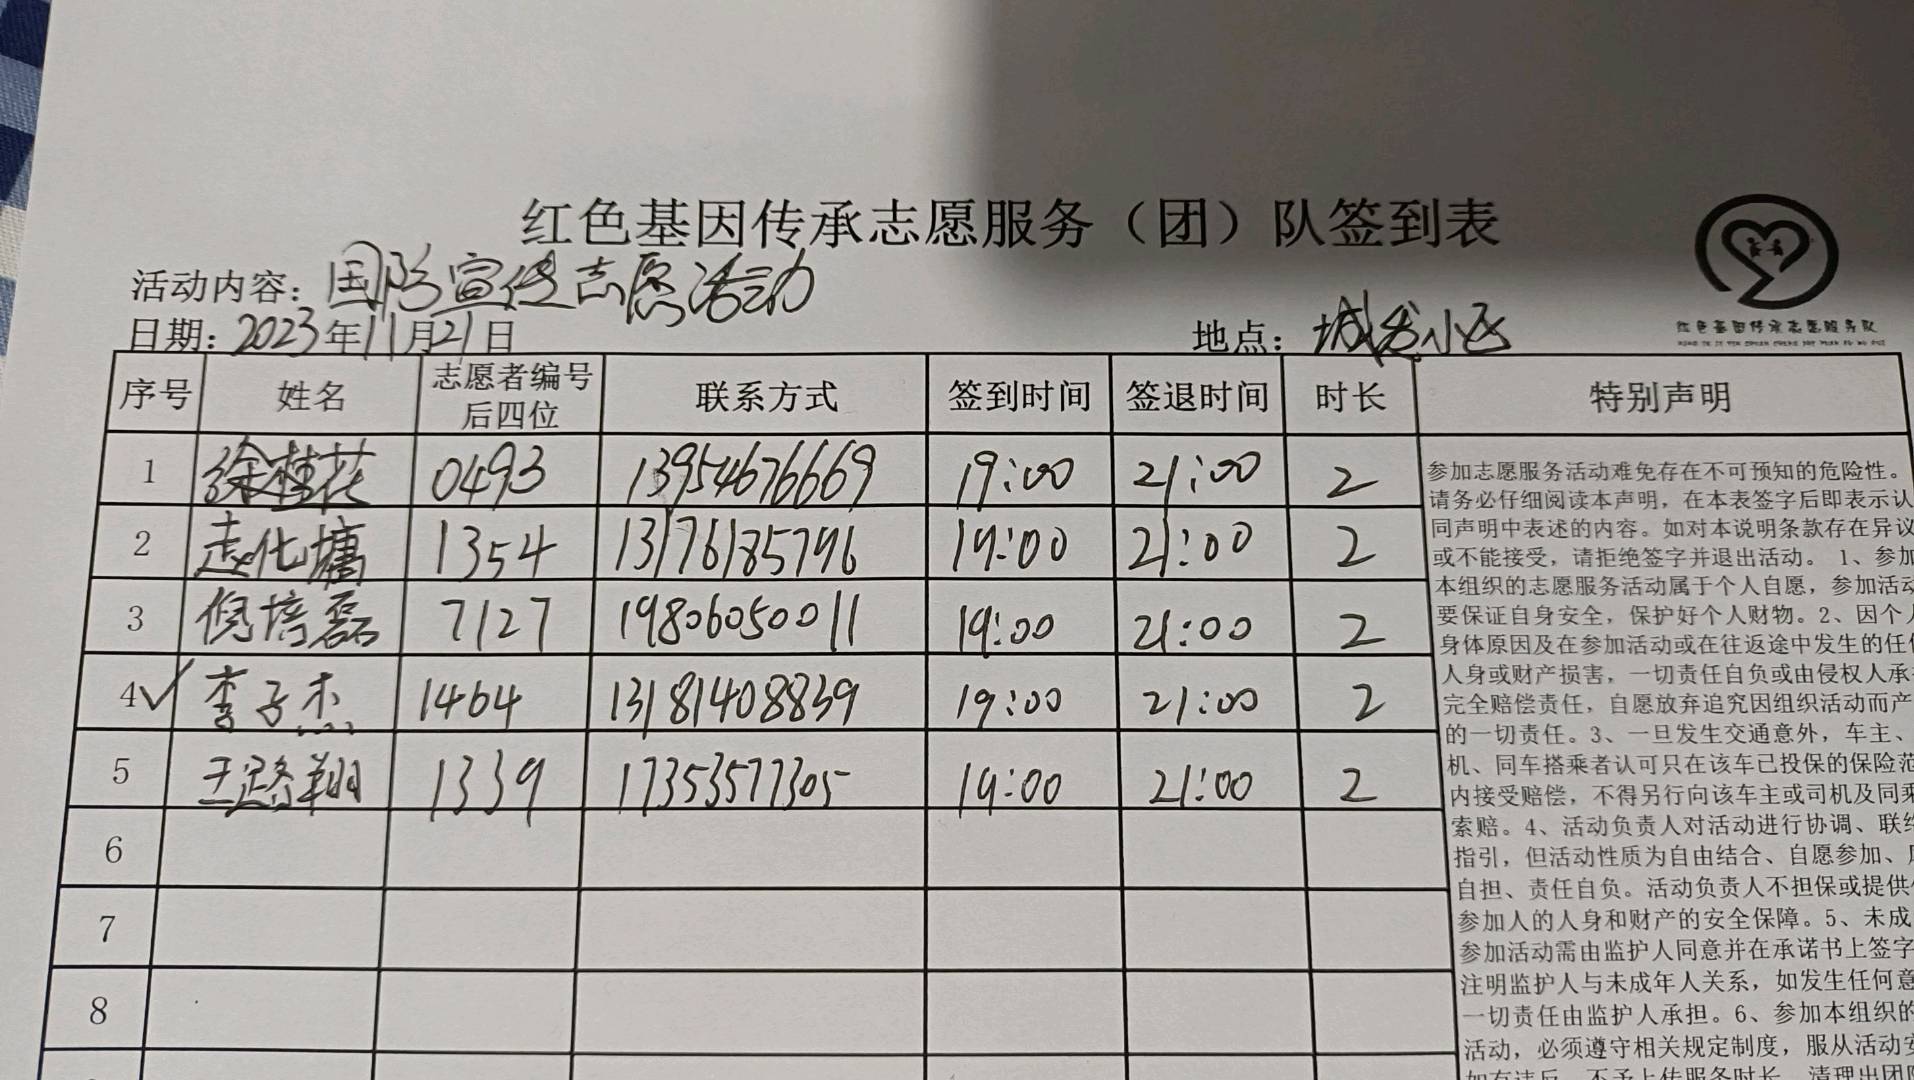 红色基因传承志愿服务（团）队签到表
活动内容：国防宣传志愿活动
日期：2023年11月21日 地点：城发小区
红色基因传承志愿服务队
序号 姓名 志愿者编号后四位 联系方式 签到时间 签退时间 时长 特别声明
1 徐桂花 0493 13954676669 19:00 21:00 2
2 赵化墉 1354 13176185796 19:00 21:00 2
3 倪培磊 7127 19806050011 19:00 21:00 2
4✓ 李子杰 1464 13181408839 19:00 21:00 2
5 王璐翔 1339 17353577305 19:00 21:00 2
6
7
8
参加志愿服务活动难免存在不可预知的危险性。
请务必仔细阅读本声明，在本表签字后即表示认
同声明中表述的内容。如对本说明条款存在异议
或不能接受，请拒绝签字并退出活动。 1、参加
本组织的志愿服务活动属于个人自愿，参加活动
要保证自身安全，保护好个人财物。2、因个人
身体原因及在参加活动或在往返途中发生的任何
人身或财产损害，一切责任自负或由侵权人承担
完全赔偿责任，自愿放弃追究因组织活动而产
的一切责任。3、一旦发生交通意外，车主、
机、同车搭乘者认可只在该车已投保的保险范
内接受赔偿，不得另行向该车主或司机及同乘
索赔。4、活动负责人对活动进行协调、联络
指引，但活动性质为自由结合、自愿参加、
自担、责任自负。活动负责人不担保或提供
参加人的人身和财产的安全保障。5、未成
参加活动需由监护人同意并在承诺书上签字
注明监护人与未成年人关系，如发生任何意
一切责任由监护人承担。6、参加本组织的
活动，必须遵守相关规定制度，服从活动安
如有违反，不予上传服务时长，清理出团队